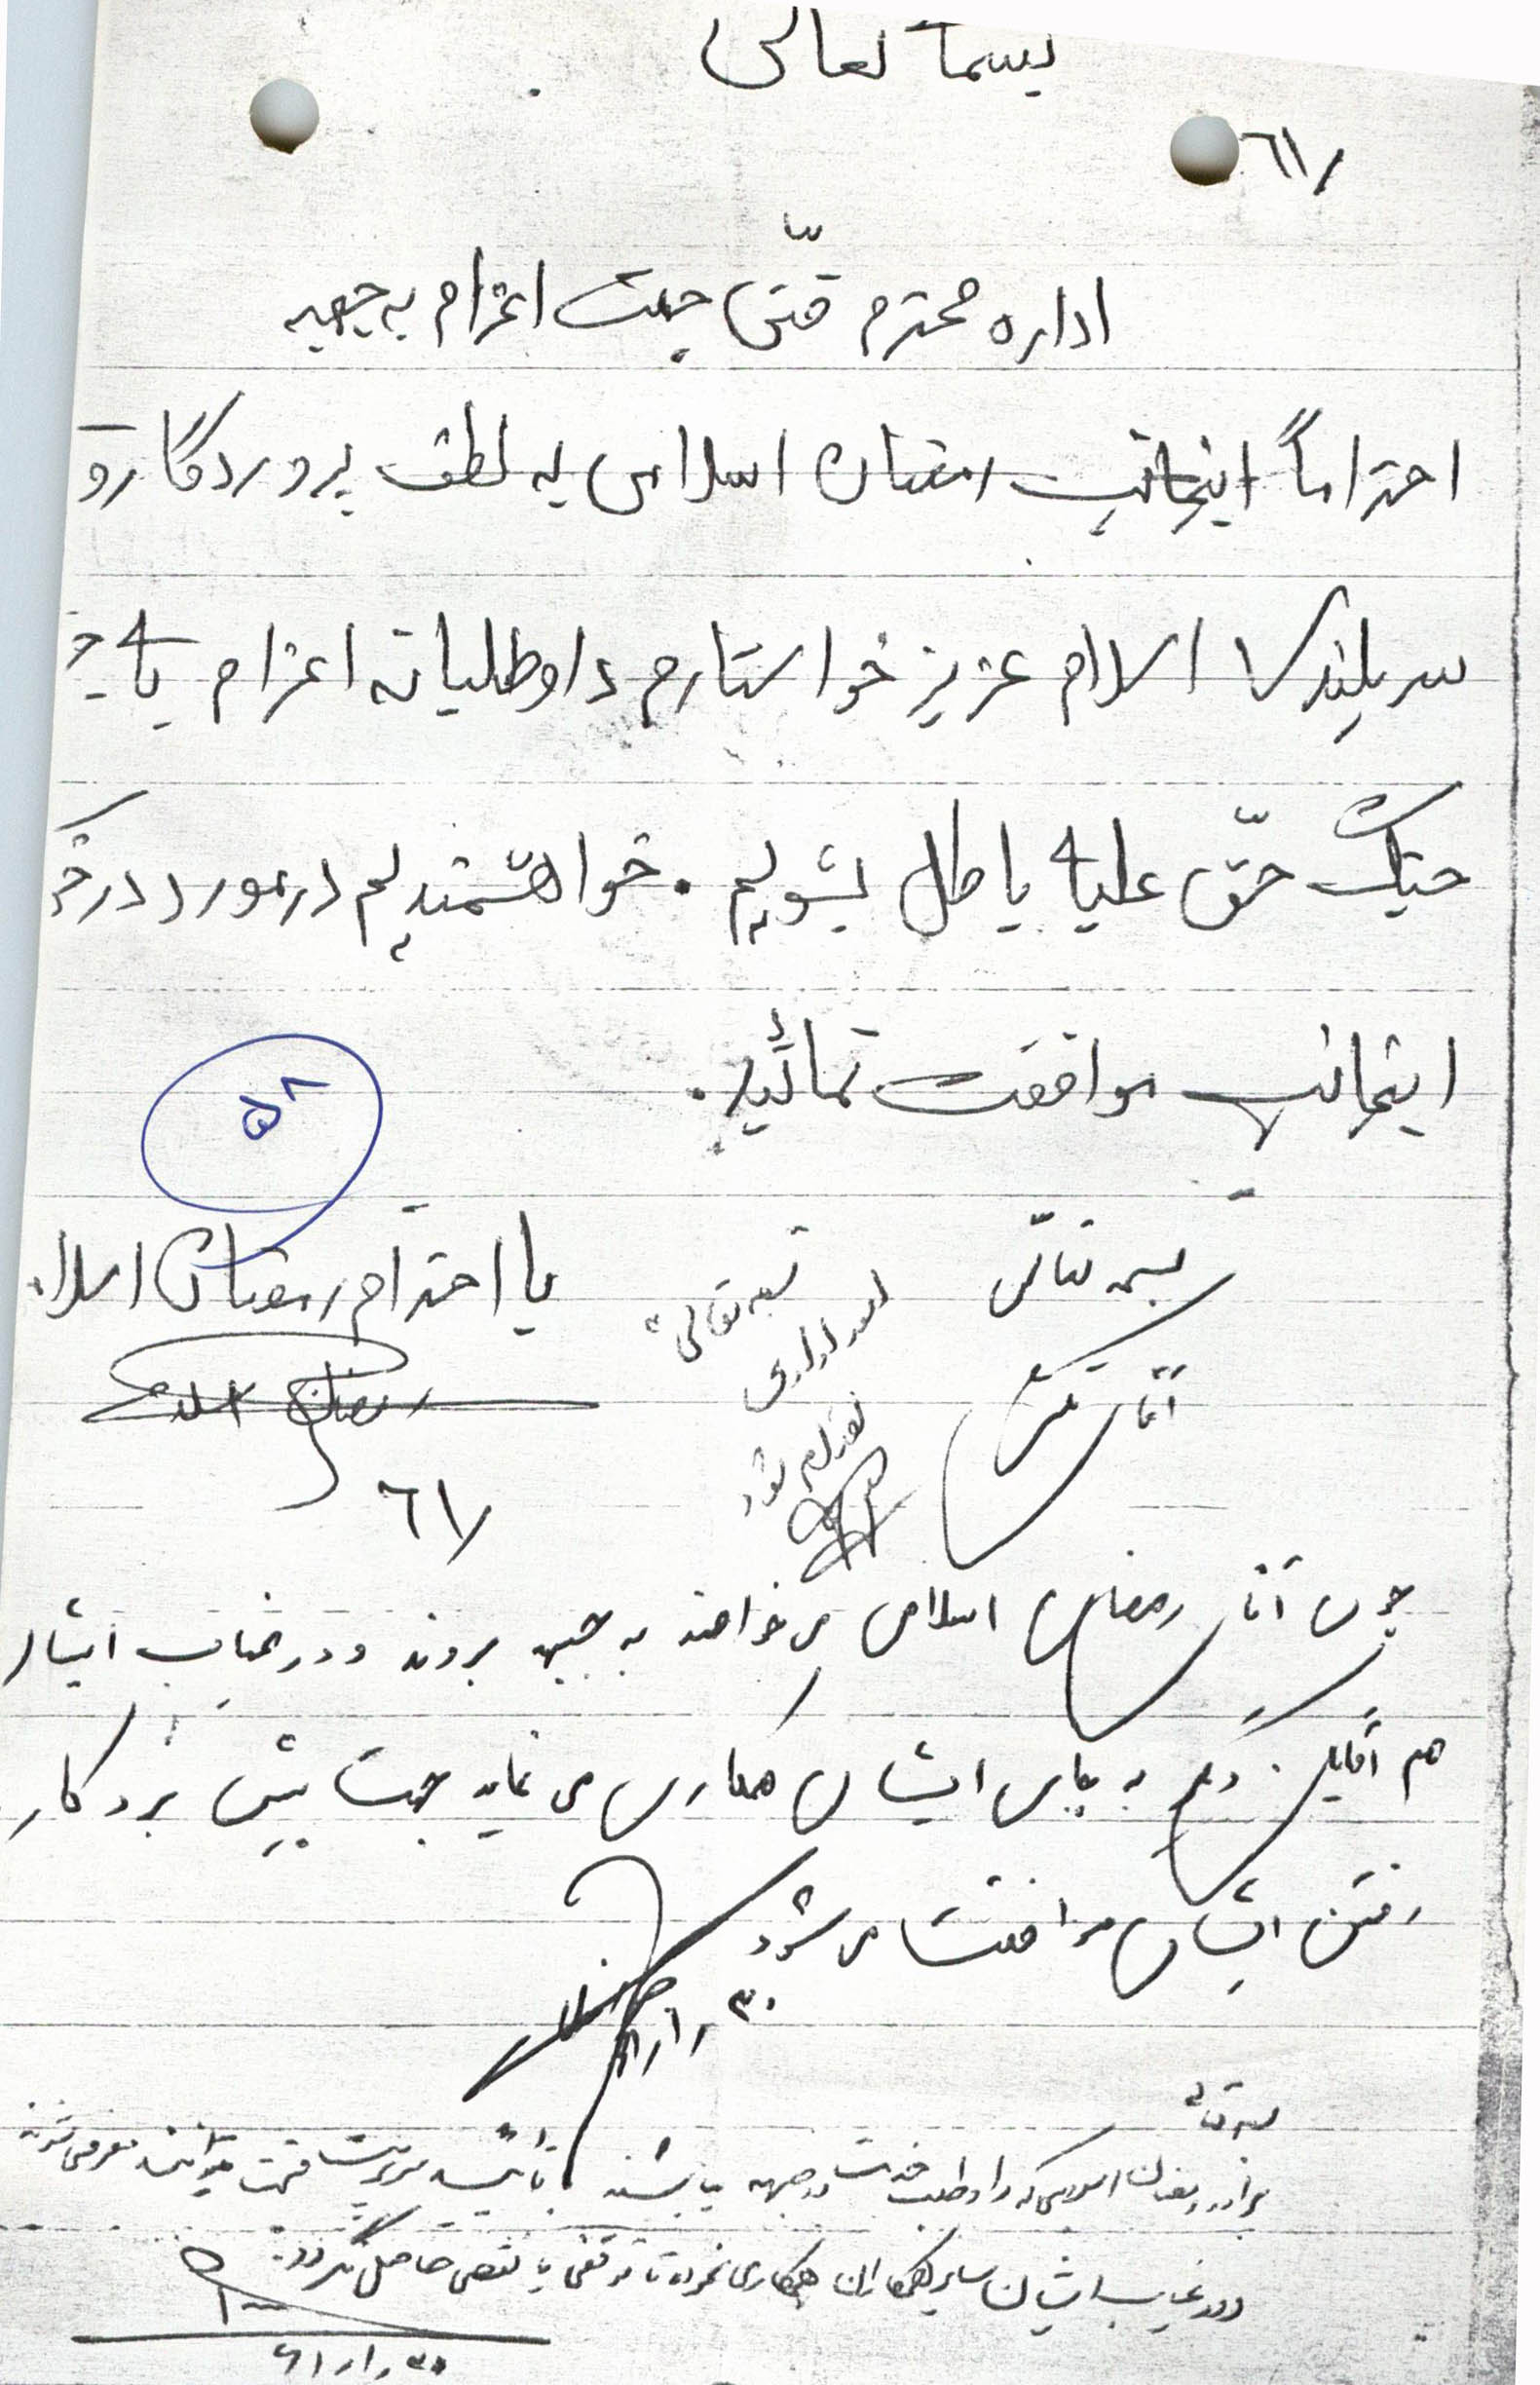 بسمه تعالی
/٦١
اداره محترم فنّی جهت اعزام به جبهه
احتراماً اینجانب رمضان اسلامی به لطف پروردگار و
سربلندی اسلام عزیز خواستارم داوطلبانه اعزام به
جنگ حقّ علیه باطل بشویم . خواهشمندیم در مورد درخو
اینجانب موافقت نمائید.
۵۸
با احترام رمضان اسلا
رمضان اسلامی
/٦١
بسمه تعالی
آقای
بسمه تعالی
اقدام شود
چون آقای رمضان اسلامی می خواهند به جبهه بروند و در غیاب ایشان
هم آقای به جای ایشان همکاری می نماید جهت پیش برد کار
رفتن ایشان موافقت می شود
۳۰ر۱ر۶۱
بسمه تعالی
برادر رمضان اسلامی که داوطلب خدمت در جبهه میباشند با تائید سرپرست قسمت میتوانند معرفی شوند
و در غیاب ایشان سایر همکاران همکاری نموده تا توقفی یا نقصی حاصل نگردد.
۳۰ر۱ر۶۱